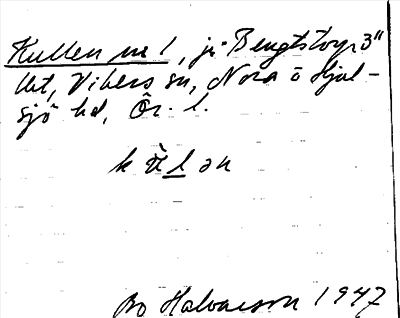 Kullen nr 1, ji Bengtstorp 3"
lkt, Vikers sn, Nora o Hjul-
sjö hd, Ör. l.
k ù̄ l ə n
Bo Halvarson 1947